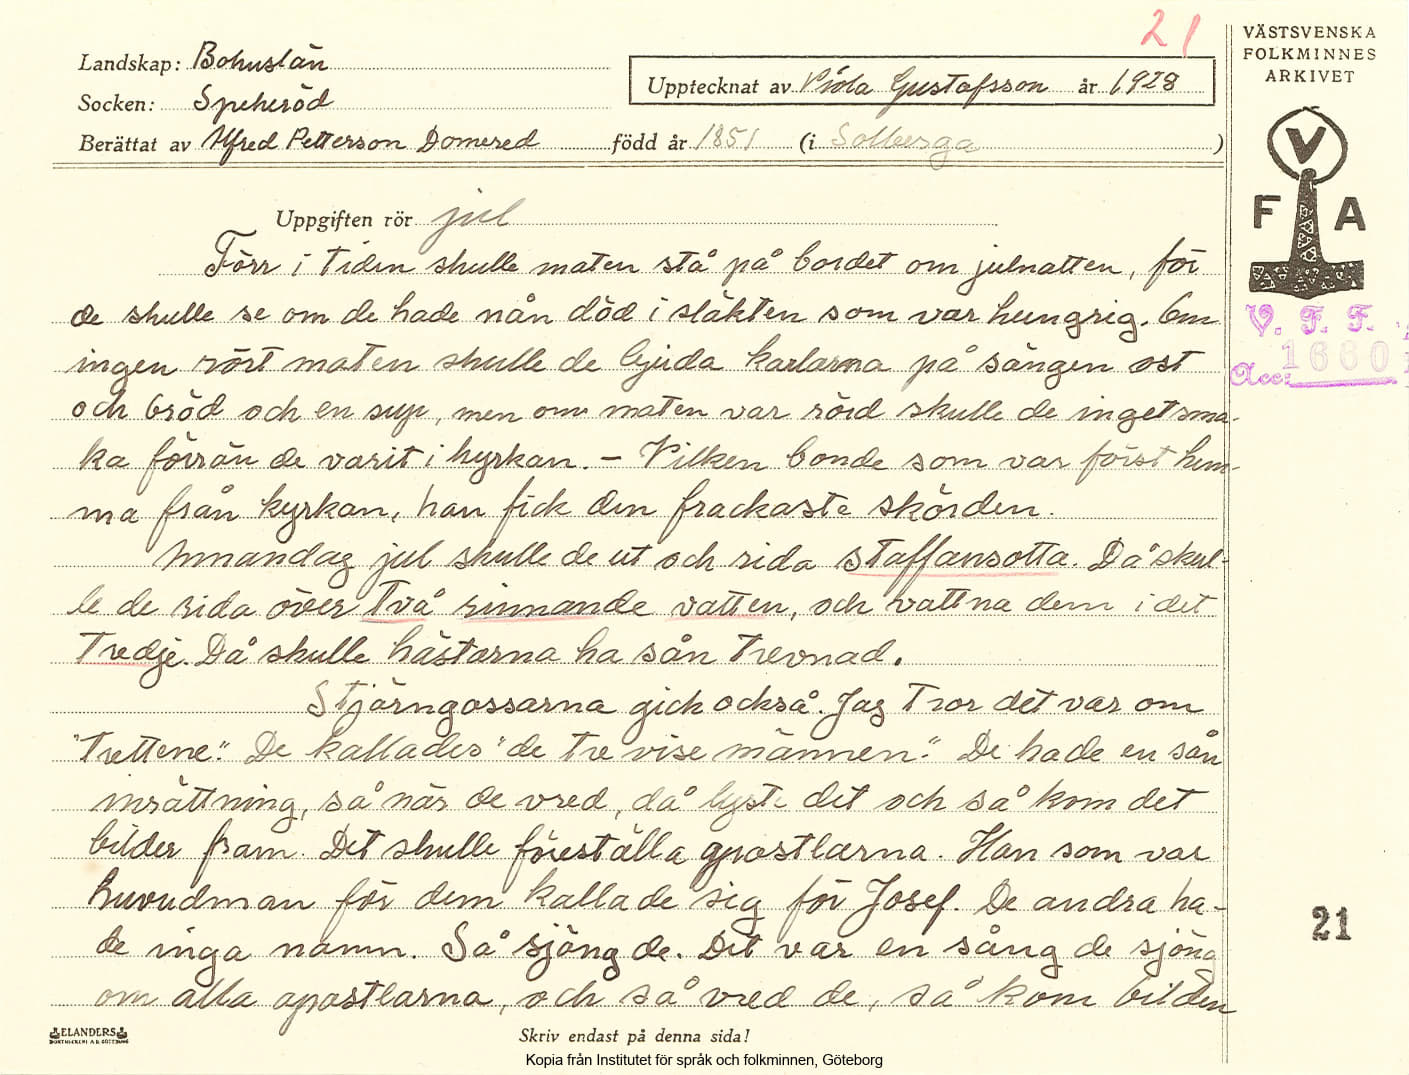 21
VÄSTSVENSKA
FOLKMINNES
ARKIVET
Landskap: Bohuslän
Socken: Spekeröd
Upptecknat av Viola Gustafsson år 1928
Berättat av Alfred Petterson Domered född år 1851 (i Solberga )
V
F A
Uppgiften rör jul
Förr i tiden skulle maten stå på bordet om julnatten, för
de skulle se om de hade nån död i släkten som var hungrig. Om
ingen rört maten skulle de bjuda karlarna på sängen ost
och bröd och en sup, men om maten var rörd skulle de inget sma-
ka förrän de varit i kyrkan. – Vilken bonde som var först hem-
ma från kyrkan, han fick den frackaste skörden.
Annandag jul skulle de ut och rida staffansotta. Då skul-
le de rida över två rinnande vatten, och vattna dem i det
tredje. Då skulle hästarna ha sån trevnad.
Stjärngossarna gick också. Jag tror det var om
"trettene". De kallades "de tre vise männen". De hade en sån
inrättning, så när de vred, då lyste det och så kom det
bilder fram. Det skulle föreställa apostlarna. Han som var
huvudman för dem kallade sig för Josef. De andra ha-
de inga namn. Så sjöng de. Det var en sång de sjöng
om alla apostlarna, och så vred de, så kom bilden
V. F. F.
Acc: 1660
21
ELANDERS
BOKTRYCKERI A.B. GÖTEBORG
Skriv endast på denna sida!
Kopia från Institutet för språk och folkminnen, Göteborg